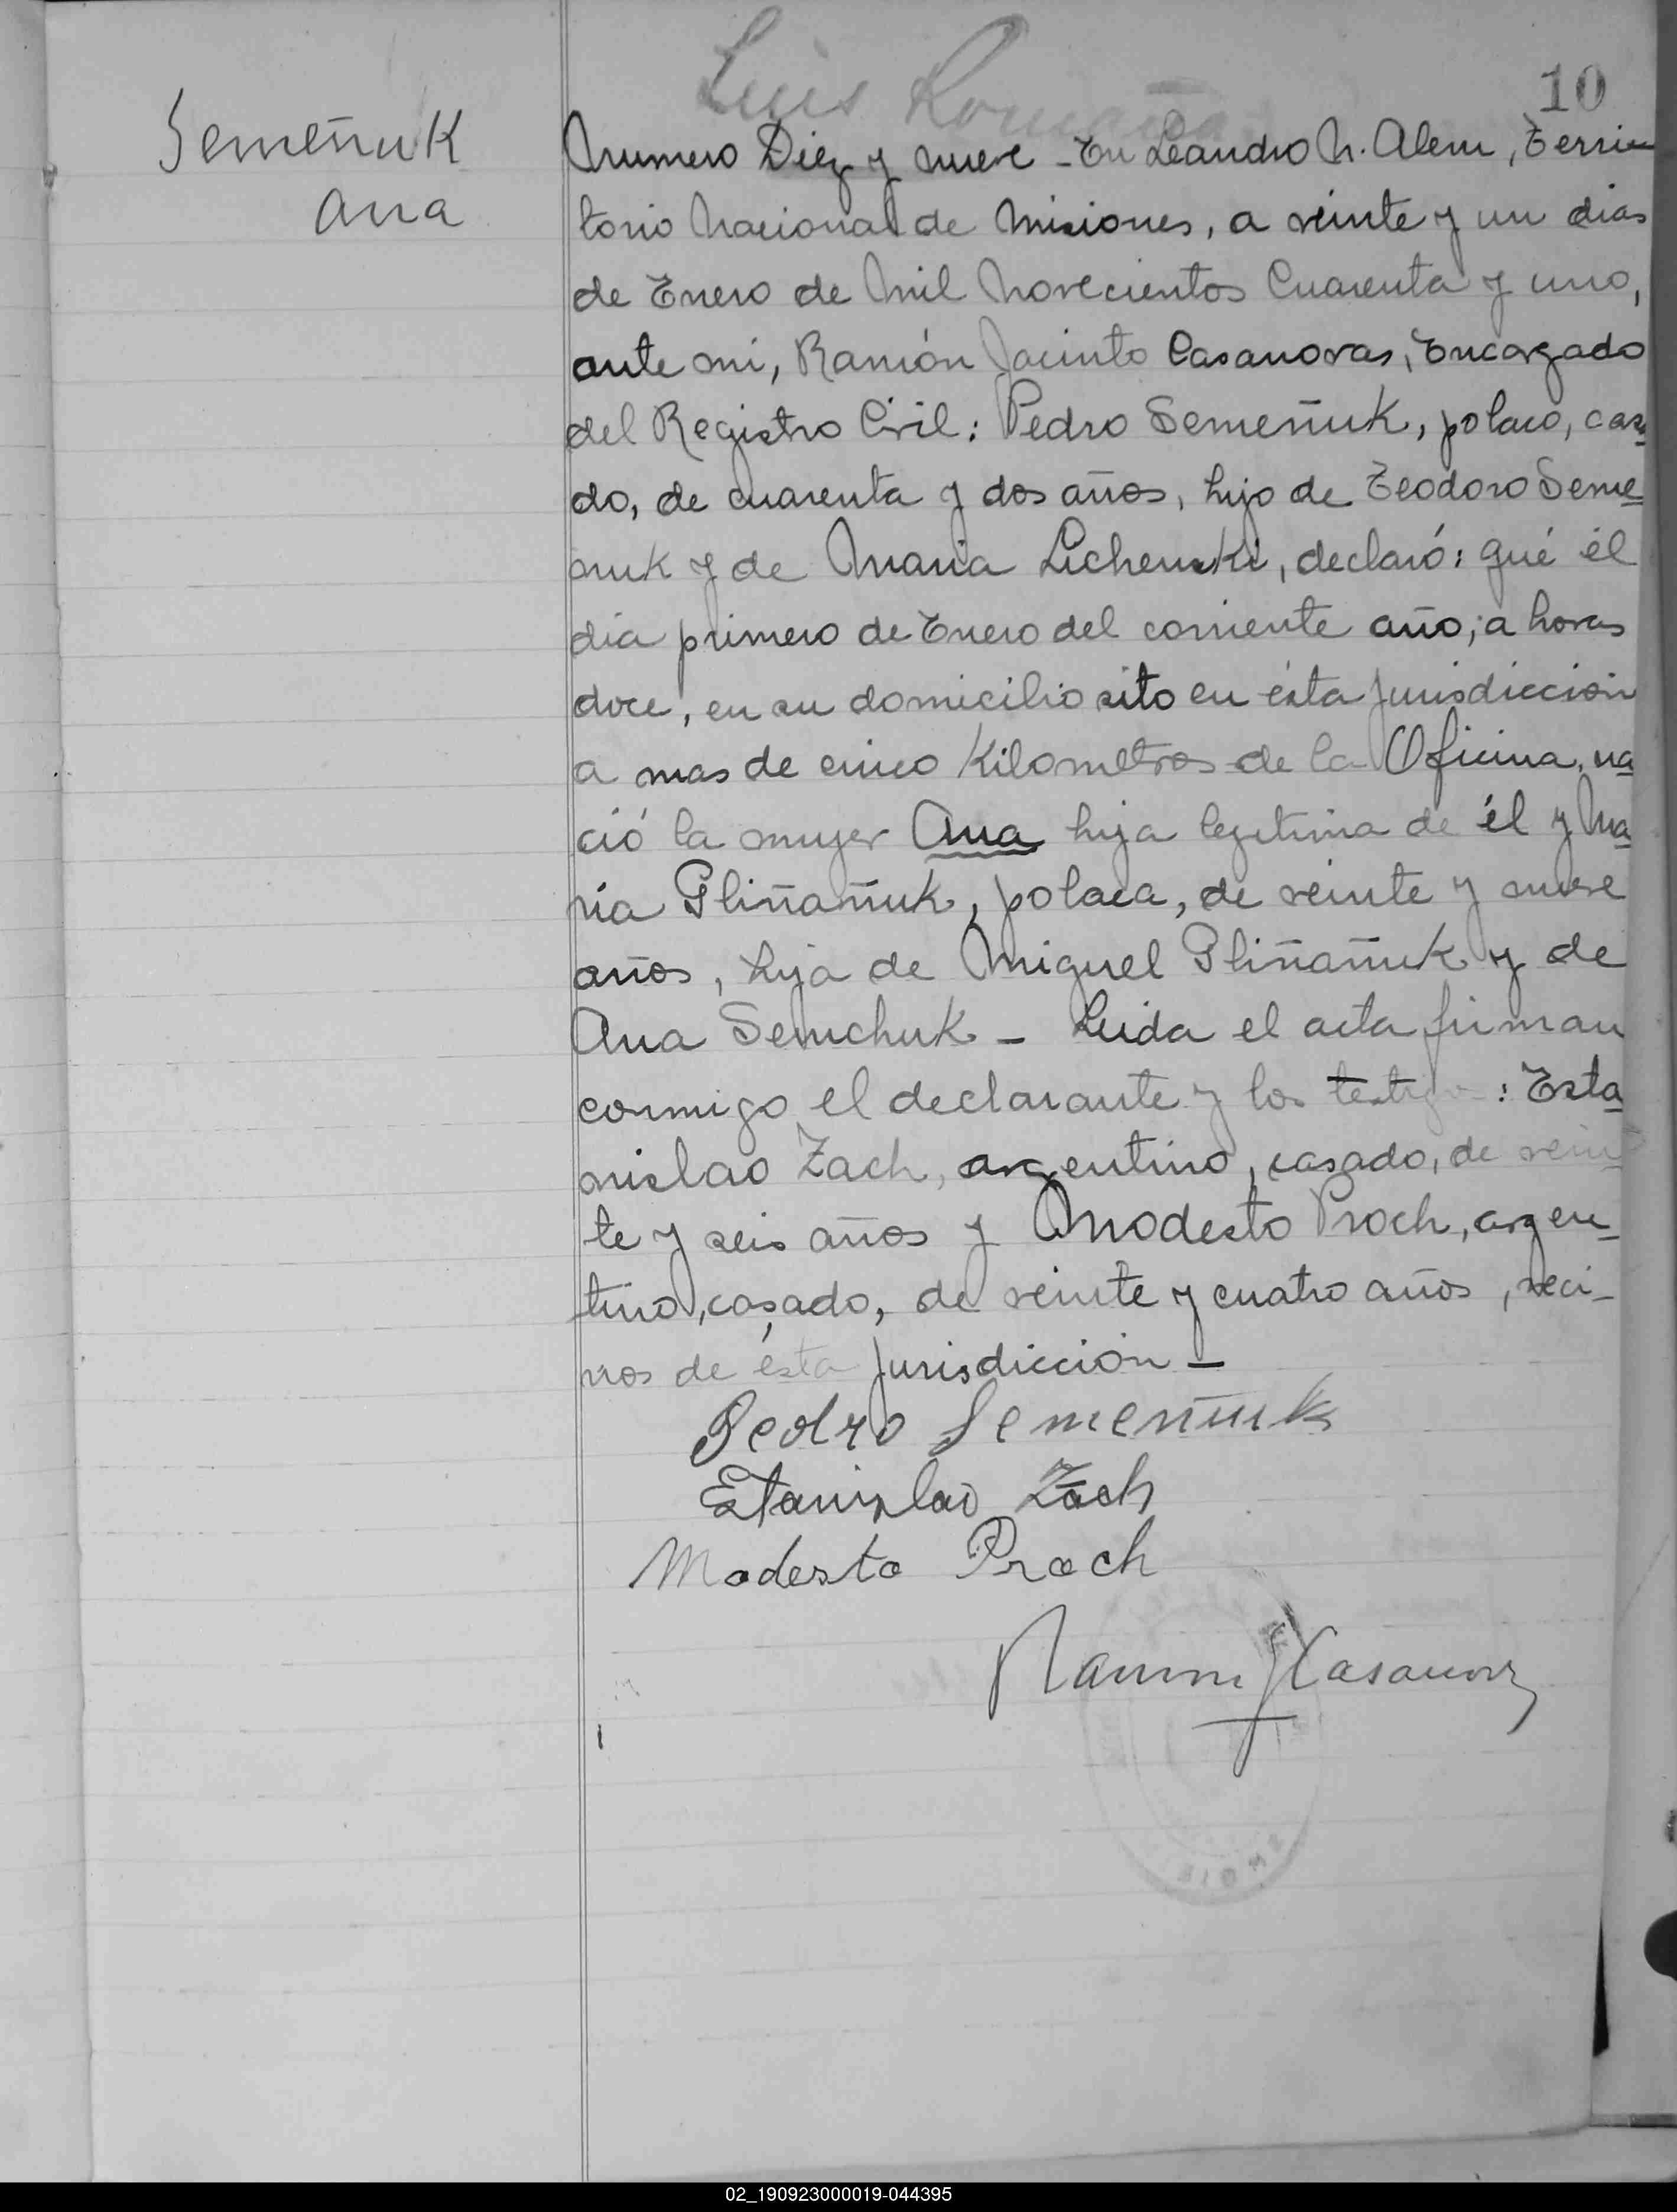 Luis Romaña
10
Semeñuk
Ana
Numero Diez y nueve - En Leandro N. Alem, Terri
torio Nacional de Misiones, a veinte y un dias
de Enero de Mil Novecientos Cuarenta y uno,
ante mi, Ramón Jacinto Casanovas, Encargado
del Registro Civil: Pedro Semeñuk, polaco, casa
do, de cuarenta y dos años, hijo de Teodoro Seme
ñuk y de Maria Lichenski, declaró: qué él
dia primero de Enero del corriente año, a horas
doce, en su domicilio sito en ésta Jurisdicción
a mas de cinco Kilometros de la Oficina, na
ció la mujer Ana hija legitima de él y Ma
ria Pliñañuk, polaca, de veinte y nueve
años, hija de Miguel Pliñañuk y de
Ana Semchuk - Leida el acta firman
conmigo el declarante y los testigos: Esta
nislao Zach, argentino, casado, de vein
te y seis años y Modesto Proch, argen_
tino, casado, de veinte y cuatro años, veci_
nos de ésta Jurisdicción -
Pedro Semeñuk
Estanislao Zach
Modesto Proch
Ramon J Casanovas
02_190923000019-044395